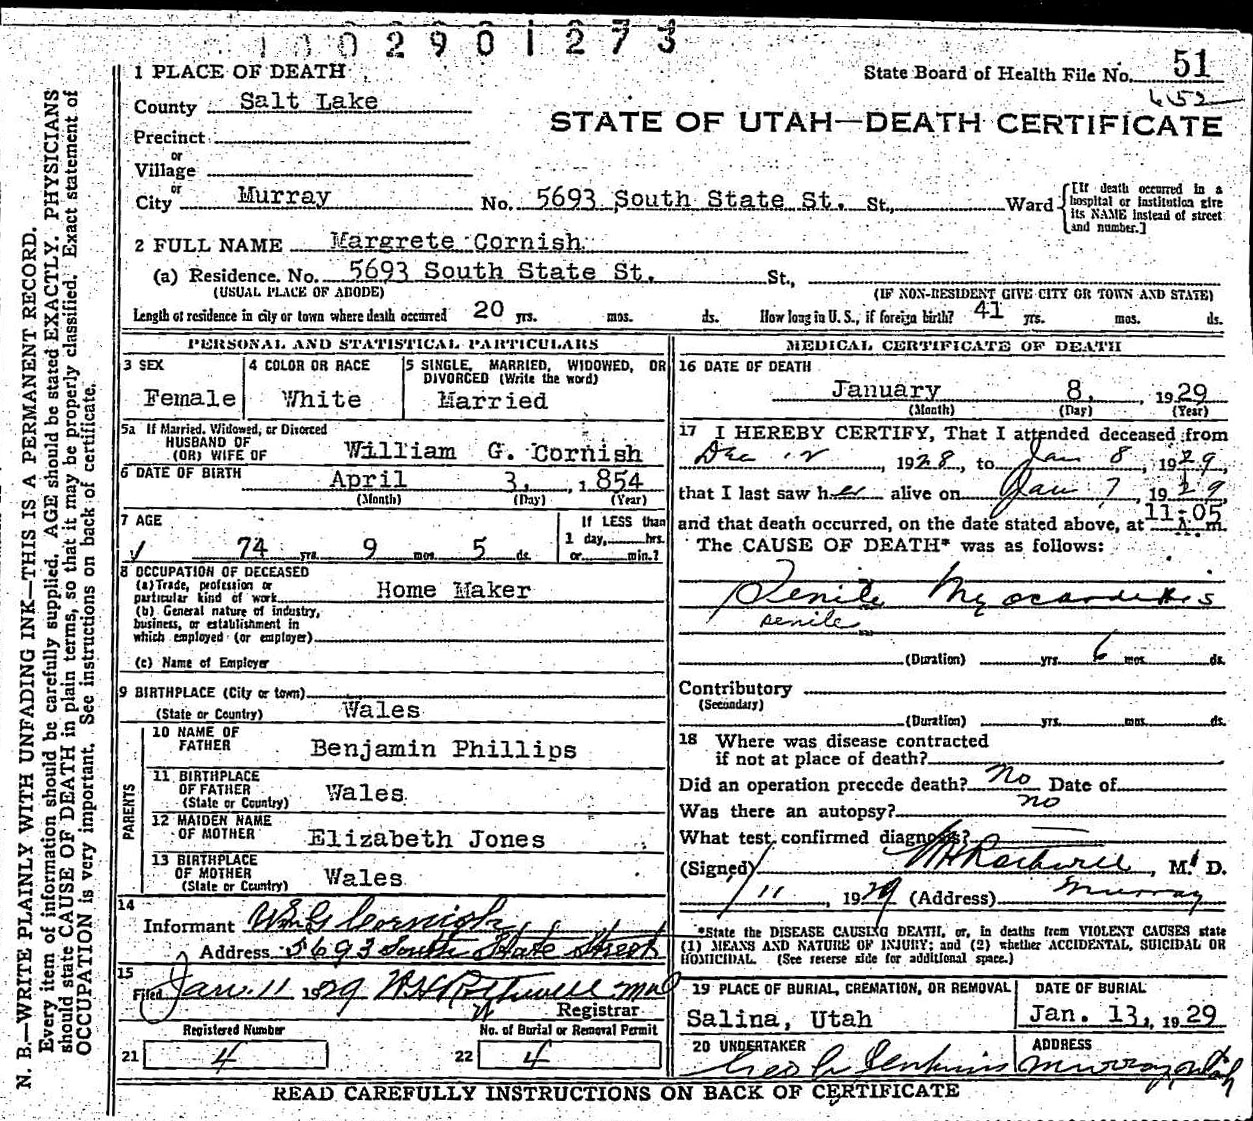 1 1 0 2 9 0 1 2 7 3
State Board of Health File No. 51
652
1 PLACE OF DEATH
County Salt Lake
STATE OF UTAH—DEATH CERTIFICATE
Precinct
or
Village
or
City Murray No. 5693 South State St. St., Ward
[If death occurred in a hospital or institution give its NAME instead of street and number.]
2 FULL NAME Margrete Cornish
(a) Residence. No. 5693 South State St. St.,
(USUAL PLACE OF ABODE) (IF NON-RESIDENT GIVE CITY OR TOWN AND STATE)
Length of residence in city or town where death occurred 20 yrs. mos. ds. How long in U. S., if foreign birth? 41 yrs. mos. ds.
PERSONAL AND STATISTICAL PARTICULARS
3 SEX
Female
4 COLOR OR RACE
White
5 SINGLE, MARRIED, WIDOWED, OR
DIVORCED (Write the word)
Married
5a If Married, Widowed, or Divorced
HUSBAND OF
(OR) WIFE OF William G. Cornish
6 DATE OF BIRTH April 3, 1854
(Month) (Day) (Year)
7 AGE
74 yrs. 9 mos. 5 ds.
If LESS than
1 day, hrs.
or min.?
8 OCCUPATION OF DECEASED
(a) Trade, profession or
particular kind of work Home Maker
(b) General nature of industry,
business, or establishment in
which employed (or employer)
(c) Name of Employer
9 BIRTHPLACE (City or town)
(State or Country) Wales
PARENTS
10 NAME OF
FATHER Benjamin Phillips
11 BIRTHPLACE
OF FATHER
(State or Country) Wales
12 MAIDEN NAME
OF MOTHER Elizabeth Jones
13 BIRTHPLACE
OF MOTHER
(State or Country) Wales
14
Informant Wm G Cornish
Address 5693 South State Street
15
Filed Jan. 11 1929 M D
Registrar
Registered Number No. of Burial or Removal Permit
21 4 22 4
MEDICAL CERTIFICATE OF DEATH
16 DATE OF DEATH
January 8, 1929
(Month) (Day) (Year)
17 I HEREBY CERTIFY, That I attended deceased from
Dec 1928, to Jan 8, 1929,
that I last saw her alive on Jan 7, 1929,
and that death occurred, on the date stated above, at 11-05 m.
The CAUSE OF DEATH* was as follows:
Senile Myocarditis
senile
(Duration) yrs. 6 mos. ds.
Contributory
(Secondary)
(Duration) yrs. mos. ds.
18 Where was disease contracted
if not at place of death?
Did an operation precede death? No Date of
Was there an autopsy? no
What test confirmed diagnosis?
(Signed) M. D.
1/11 1929 (Address) Murray
*State the DISEASE CAUSING DEATH, or, in deaths from VIOLENT CAUSES state
(1) MEANS AND NATURE OF INJURY; and (2) whether ACCIDENTAL, SUICIDAL OR
HOMICIDAL. (See reverse side for additional space.)
19 PLACE OF BURIAL, CREMATION, OR REMOVAL
Salina, Utah
DATE OF BURIAL
Jan. 13, 1929
20 UNDERTAKER
Jenkins
ADDRESS
Murray, Utah
READ CAREFULLY INSTRUCTIONS ON BACK OF CERTIFICATE
N. B.—WRITE PLAINLY WITH UNFADING INK—THIS IS A PERMANENT RECORD.
Every item of information should be carefully supplied. AGE should be stated EXACTLY. PHYSICIANS
should state CAUSE OF DEATH in plain terms, so that it may be properly classified. Exact statement of
OCCUPATION is very important. See instructions on back of certificate.